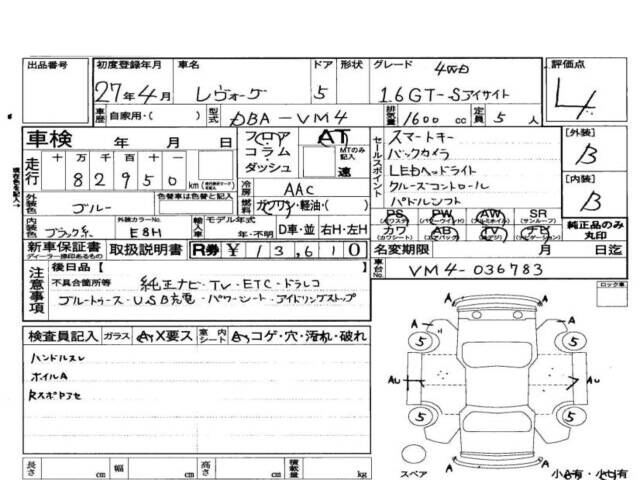 出品番号 初度登録年月 車名 ドア 形状 グレード 評価点
27年4月 レヴォーグ 5 4WD 1.6GT-Sアイサイト 4
車歴 自家用・( ) 型式 DBA-VM4 排気量 1600 cc 定員 5 人
車検 年 月 日 フロア AT セールスポイント スマートキー [外装]
走行 十 万 千 百 十 コラム MTのみ記入 バックカメラ B
8 2 9 5 0 km ダッシュ 速 LEDヘッドライト [内装]
冷房 AAC クルーズコントロール B
外装色 ブルー 色替車は色替と記入 燃料 ガソリン・軽油・( ) パドルシフト
内装色 ブラック系 外装カラーNo. E8H 輸入車 モデル年式 年・不明 D車・並 右H・左H
PS PW AW SR
(パワステ) (パワーウインド) (アルミホイル) (サンルーフ)
カワ AB TV ナビ 純正品のみ丸印
(カワシート) (エアバッグ) (テレビ) (ナビゲーション)
新車保証書 取扱説明書 R券 ¥13,610 名変期限 月 日迄
ディーラー捺印あるもの
車台No. VM4-036783
注意事項 後日品 [ ]
不具合箇所等 純正ナビ・TV・ETC・ドラレコ
ブルートゥース・USB充電・パワーシート・アイドリングストップ
ロック車
検査員記入 ガラス A・X要ス 室内シート A・コゲ・穴・汚れ・破れ
ハンドルスレ
ホイルA
A A
5 5
AU AU
5 5
A A
スペア
長さ cm 幅 cm 高さ cm 積載量 kg